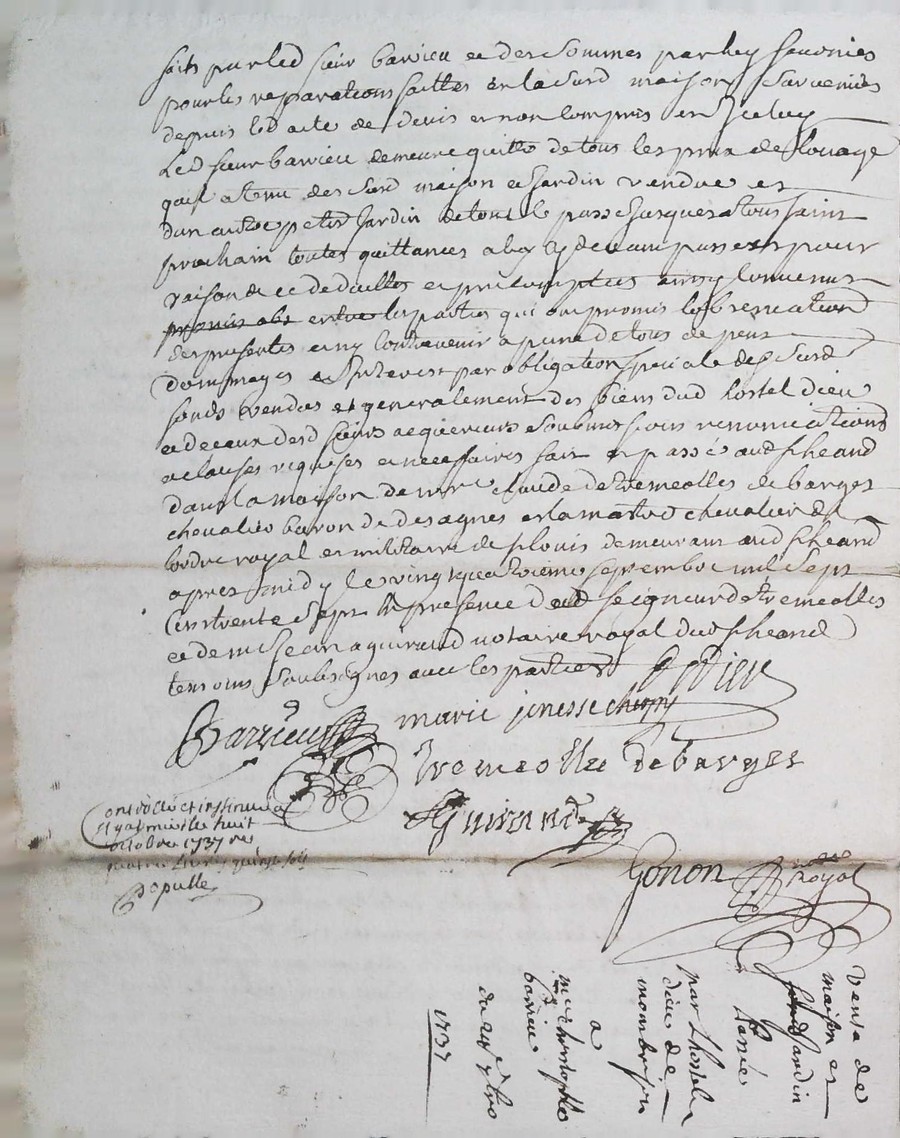 faits par led sieur barrieu et des sommes par luy fournies
pour les reparations faittes en lad surd maison survenues
depuis led acte de devis et non compris en Iceluy
Led sieur barrieu demeure quitte de tous les prix de louage
quil a tenu des surd maison et Jardin vendue et
dun autre petit Jardin de tout le passé Jusques a toussaint
prochain toutes quittances a luy cy devant passees pour
raison de ce deduittes et precomptees ainsy convenus
promis obs entre les parties qui ont promis lobservation
des presentes et ny contrevenir a peine de tous depens
dommages et Interest par obligation speciale des surd
fonds vendus et generalement des biens dud hostel dieu
et de ceux desd sieurs acquereurs soubmissions renonciations
et clauses requises et necessaires fait et passé aud pheand
dans la maison de mre claude de tremeolles de barges
chevalier baron de desagnes et lamastre chevalier de
lordre royal et militaire de st louis demeurant aud pheand
apres midy le vingt quatrieme septembre mil sept
cents trente sept en presence dud seigneur de tremeolles
et de me Jean aguirand notaire royal dud pheand
temoins soubsignes avec les parties
Barrieu marie jenesse
tremeolles debarges
Guirand
Gonon royal
controllé et insinué a
le huit
octobre 1737 re
quatre livres quinze sols
populle
Vente de
maison et
Jardin
passée
par Lhostel
dieu de
montbrison
a
me christophle
barrieu
du 24 7bre
1737